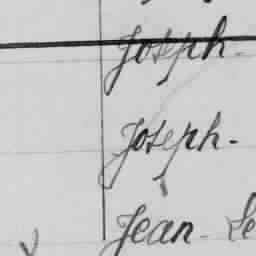 Joseph-
Joseph-
Jean- Le